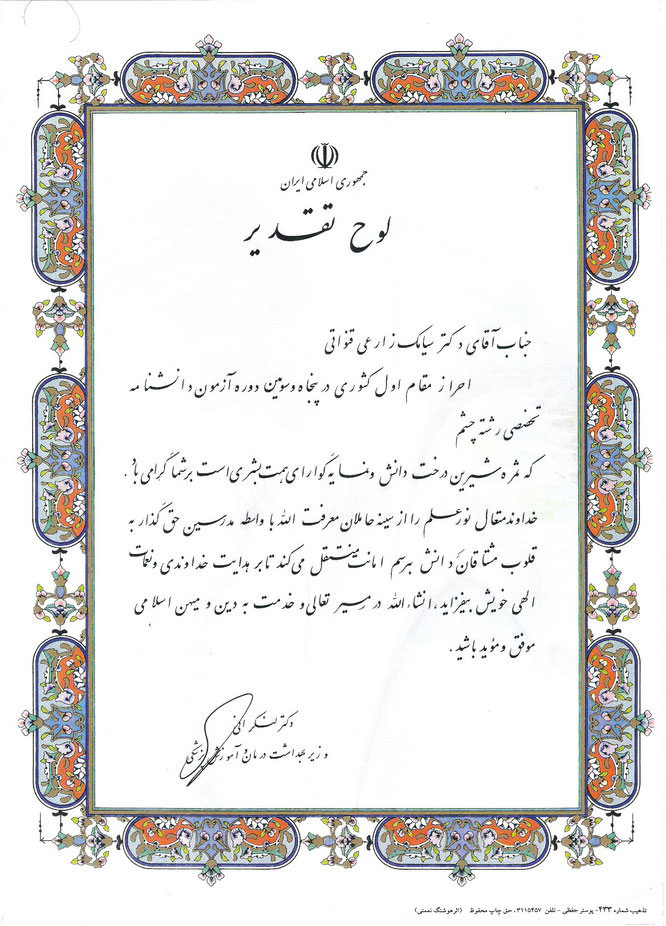 جمهوری اسلامی ایران
لوح تقدیر
جناب آقای دکتر سیامک زارعی قنواتی
احراز مقام اول کشوری در پنجاه و سومین دوره آزمون دانشنامه
تخصصی رشته چشم
که ثمره شیرین درخت دانش و نمایه گوارای همت بشری است بر شما گرامی باد.
خداوند متعال نور علم را از سینه حاملان معرفت الله با واسطه مدرسین حق گذار به
قلوب مشتاقان دانش برسم امانت منتقل می کند تا بر هدایت خداوندی و نعمات
الهی خویش بیفزاید، انشاءالله در مسیر تعالی و خدمت به دین و میهن اسلامی
موفق و مؤید باشید.
دکتر لنکرانی
وزیر بهداشت درمان و آموزش پزشکی
تذهیب شماره ۴۳۳- پوستر حفظی - تلفن ۳۱۱۵۴۵۷، حق چاپ محفوظ (اثر هوشنگ نعمتی)